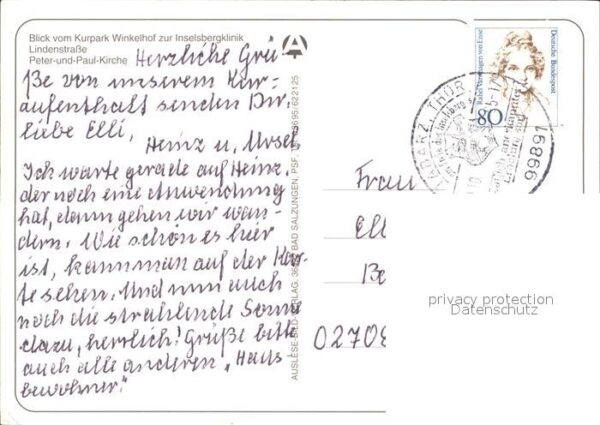 Blick vom Kurpark Winkelhof zur Inselsbergklinik
Lindenstraße
Peter-und-Paul-Kirche
Herzliche Grü-
ße von unserem Kur-
aufenthalt senden Dir,
liebe Elli,
Heinz u. Ursel
Ich warte gerade auf Heinz,
der noch eine Anwendung
hat, dann gehen wir wan-
dern. Wie schön es hier
ist, kann man auf der Kar-
te sehen. Und nun auch
noch die strahlende Sonne
dazu, herrlich! Grüße bitte
auch alle anderen „Haus
bewohner."
AUSLESE-BILD-VERLAG, BAD SALZUNGEN, PSF
03695/622125
Deutsche Bundespost
Rahel Varnhagen von Ense
80
TABARZ, THÜR
99891
Frau
Ell
Be
0270
privacy protection
Datenschutz